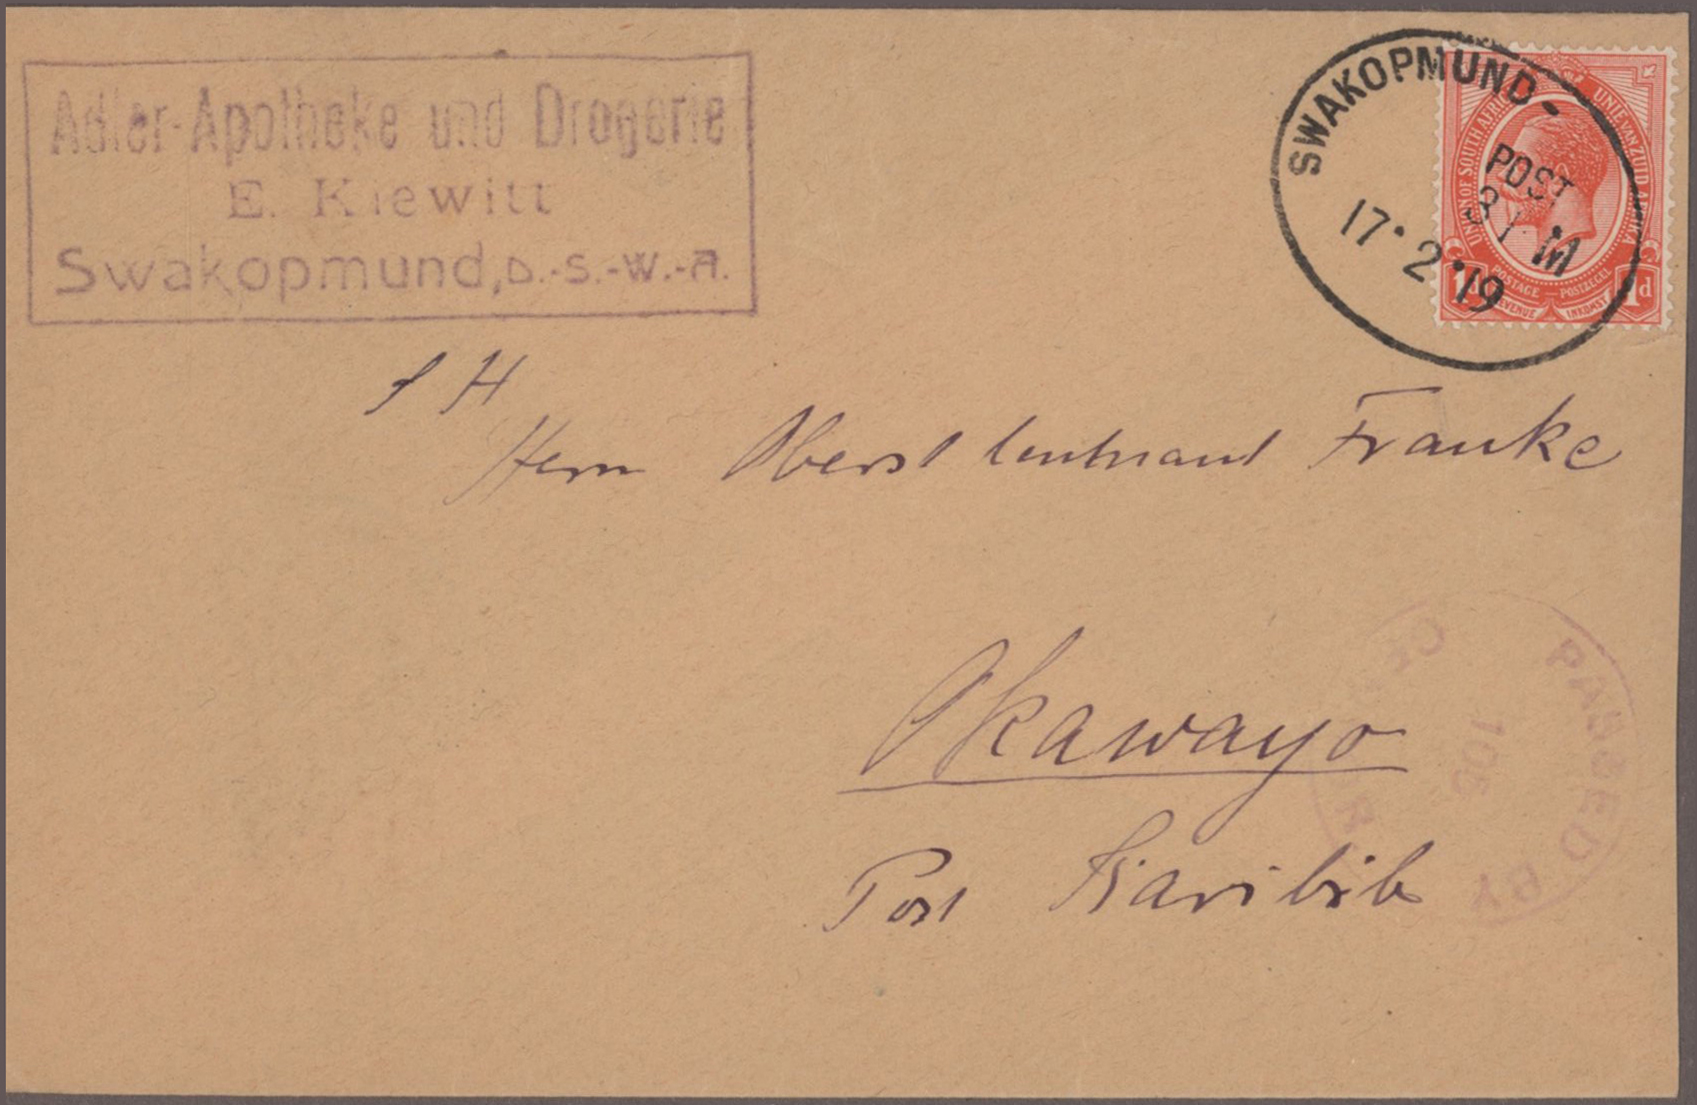 Adler-Apotheke und Drogerie
E. Kiewitt
Swakopmund, D.-S.-W.-A.
SWAKOPMUND-
POST
17·2·19
UNION OF SOUTH AFRICA
UNIE VAN ZUID AFRIKA
POSTAGE POSTZEGEL
REVENUE INKOMST
1d 1d
S H
Herrn Oberstleutnant Franke
Okawayo
Post Karibib
PASSED BY
105